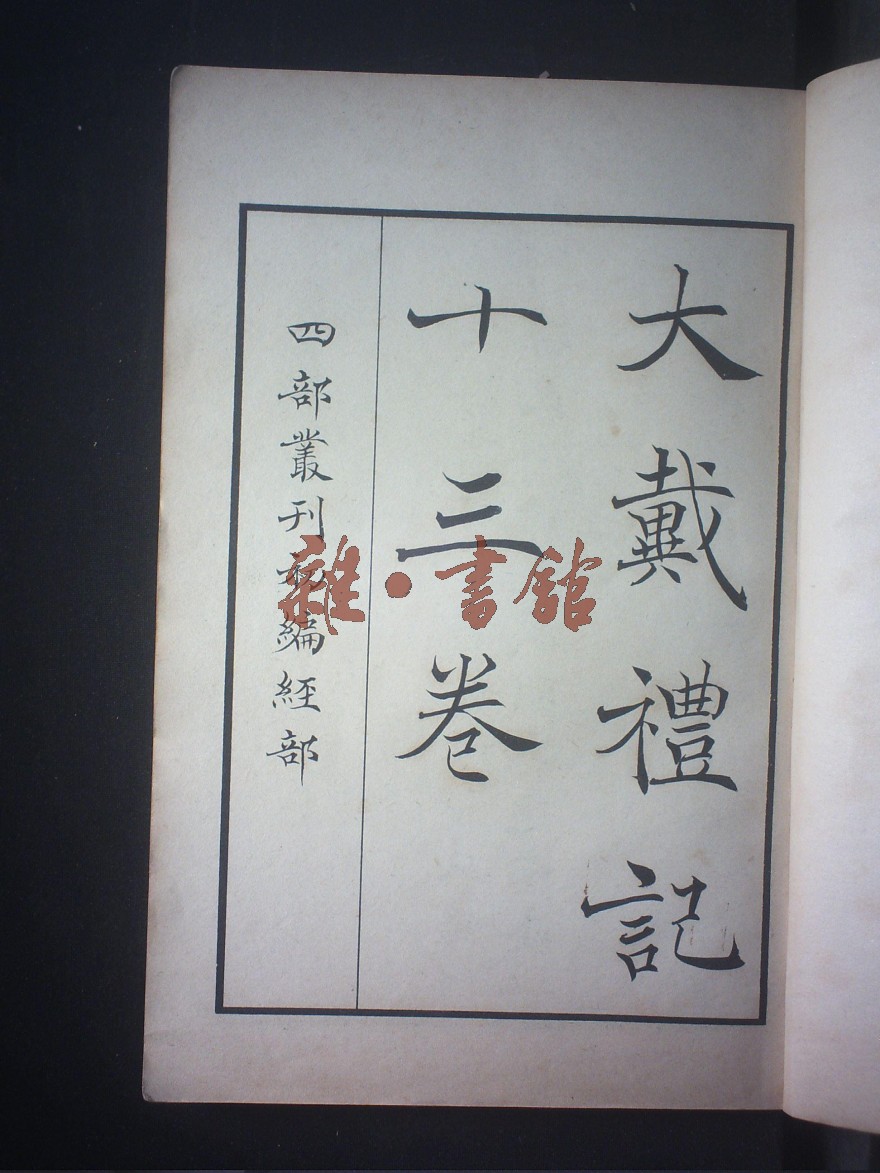 大戴禮記
十三卷
四部叢刊初編經部
雜·書館